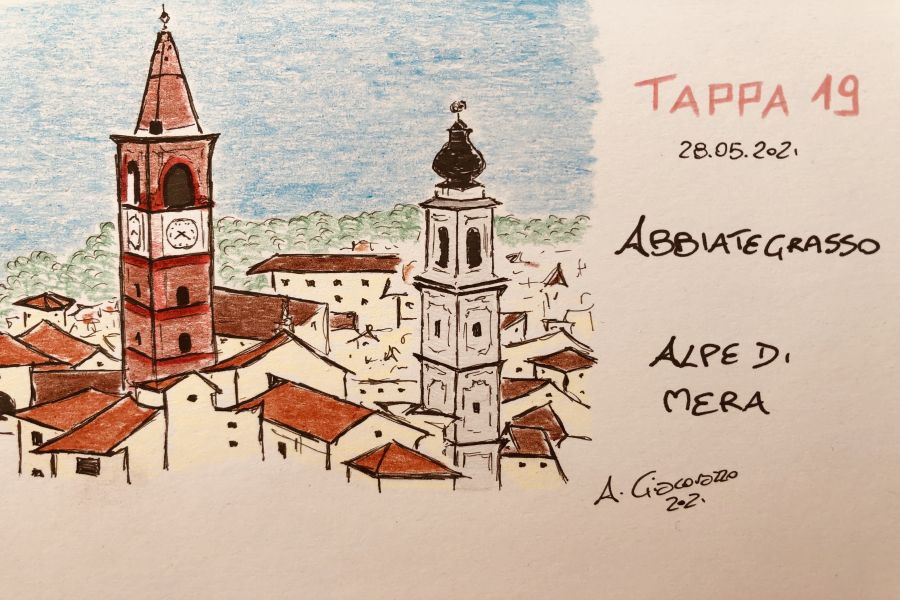 TAPPA 19
28.05.2021
ABBIATEGRASSO
ALPE DI
MERA
A. Giacovazzo
2021